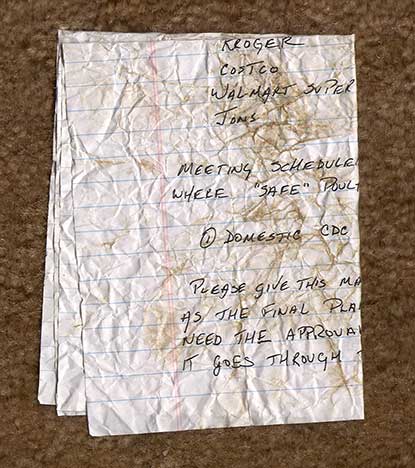 KROGER
COSTCO
WALMART SUPER
JONS
MEETING SCHEDULE
WHERE "SAFE" POULT
① DOMESTIC CDC
PLEASE GIVE THIS MA
AS THE FINAL PLA
NEED THE APPROVA
IT GOES THROUGH T